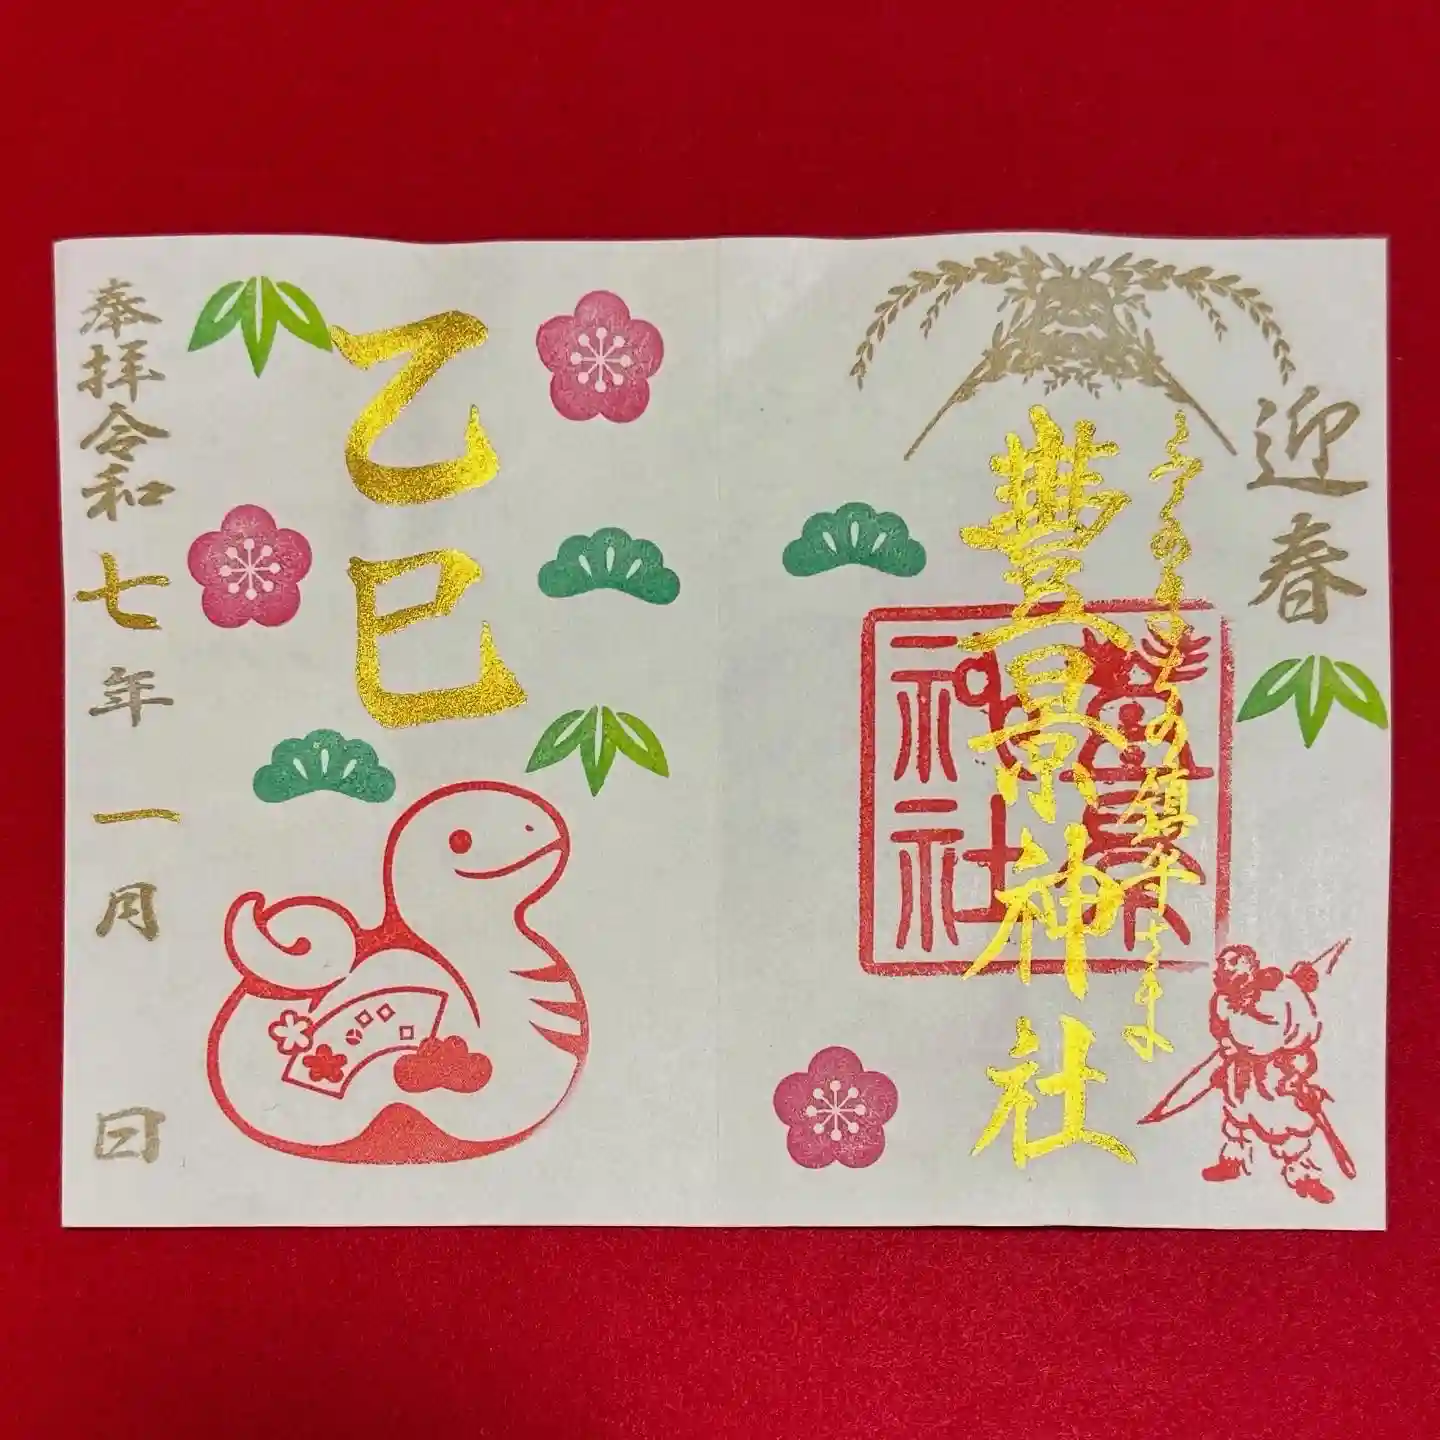 迎春
ふでのまちの鎮守さま
豊景神社
豊景神社
乙巳
奉拝令和七年一月 日